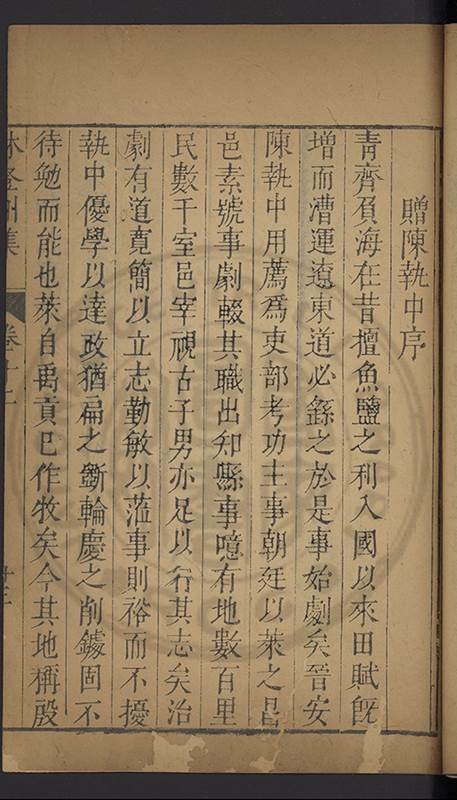 贈陳執中序
青齊負海在昔擅魚鹽之利入國以來田賦旣
增而漕運遼東道必繇之於是事始劇矣晉安
陳執中用薦爲吏部考功主事朝廷以萊之昌
邑素號事劇輟其職出知縣事噫有地數百里
民數千室邑宰視古子男亦足以行其志矣治
劇有道竟簡以立志勤敏以蒞事則裕而不擾
執中優學以達政猶扁之斵輪慶之削鐻固不
待勉而能也萊自禹貢已作牧矣今其地稱殷
林登州集
卷十一